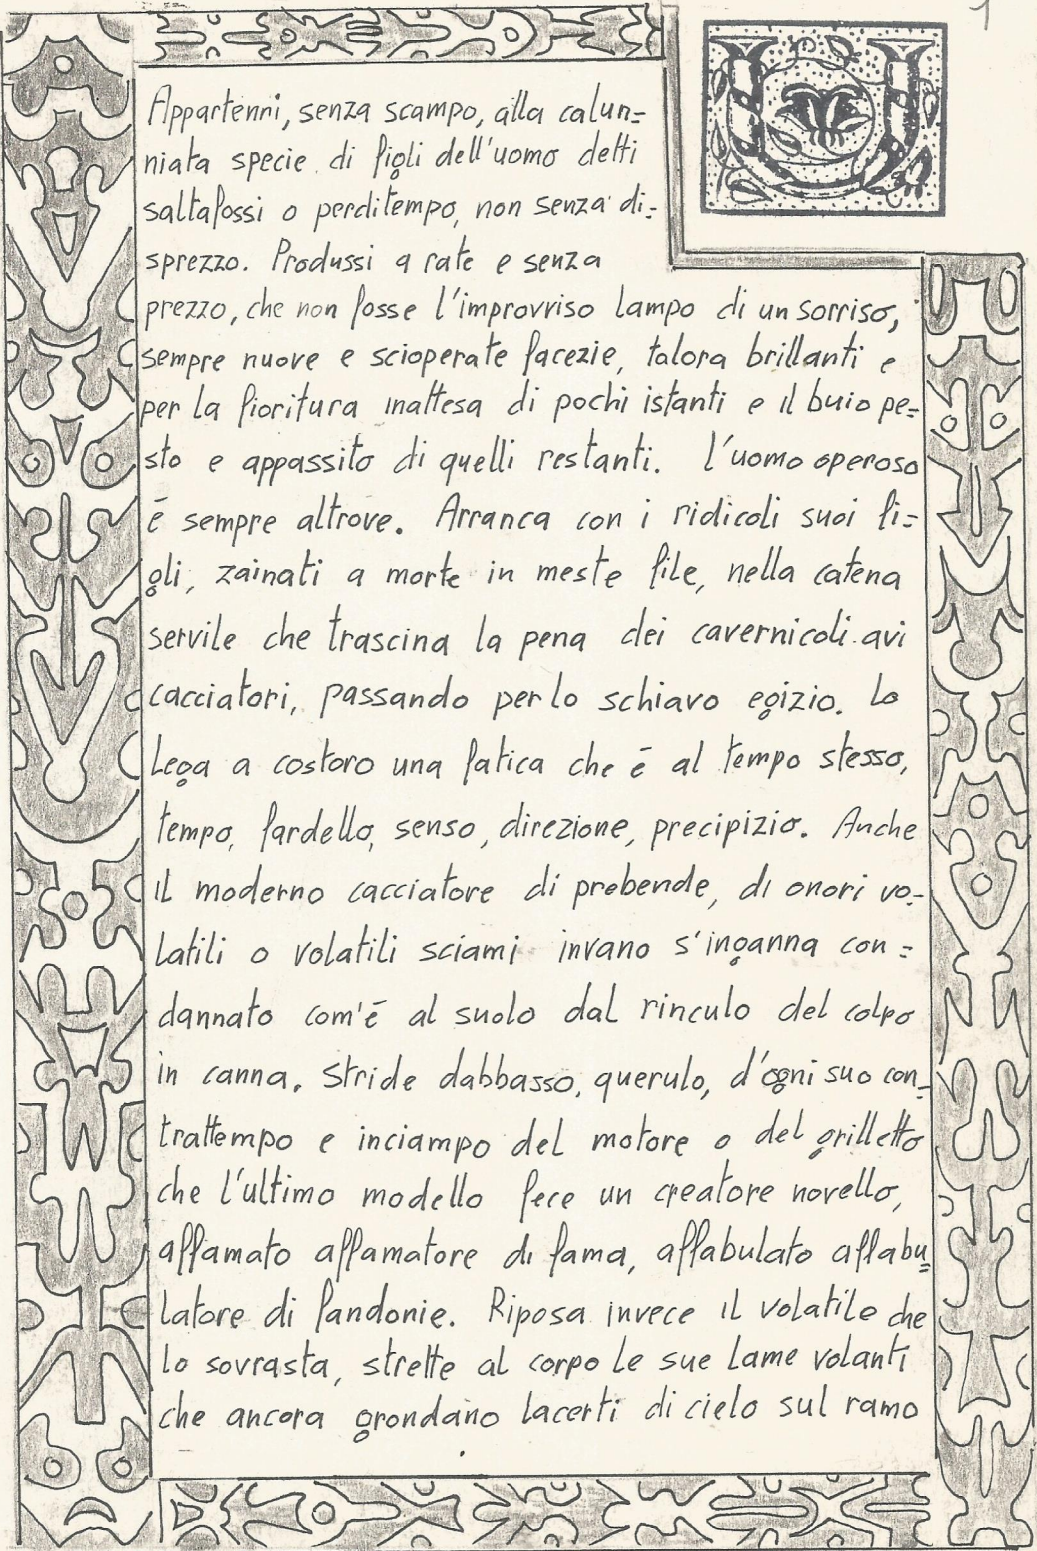 1
U
Appartenni, senza scampo, alla calun=
niata specie di figli dell'uomo detti
saltafossi o perditempo, non senza di=
sprezzo. Produssi a rate e senza
prezzo, che non fosse l'improvviso lampo di un sorriso,
sempre nuove e scioperate facezie, talora brillanti e
per la fioritura inattesa di pochi istanti e il buio pe=
sto e appassito di quelli restanti. L'uomo operoso
è sempre altrove. Arranca con i ridicoli suoi fi=
gli, zainati a morte in meste file, nella catena
servile che trascina la pena dei cavernicoli avi
cacciatori, passando per lo schiavo egizio. Lo
lega a costoro una fatica che è al tempo stesso,
tempo, fardello, senso, direzione, precipizio. Anche
il moderno cacciatore di prebende, di onori vo=
latili o volatili sciami invano s'inganna con=
dannato com'è al suolo dal rinculo del colpo
in canna. Stride dabbasso, querulo, d'ogni suo con=
trattempo e inciampo del motore o del grilletto
che l'ultimo modello fece un creatore novello,
affamato affamatore di fama, affabulato affabu=
latore di fandonie. Riposa invece il volatile che
lo sovrasta, strette al corpo le sue lame volanti
che ancora grondano lacerti di cielo sul ramo